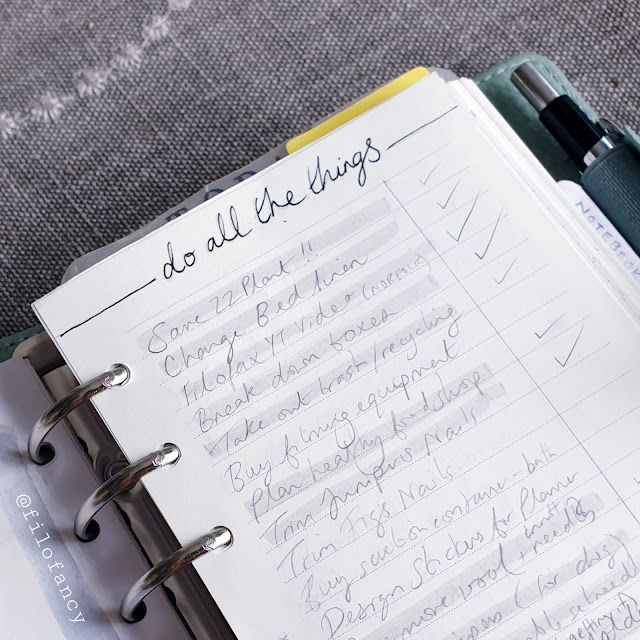 do all the things
Save ZZ Plant !!
Change Bed linen
Filofax YT Video (NORDIC)
Break down boxes
Take out trash/recycling
Buy filming equipment
Plan healthy food shop
Trim Junipers Nails
Trim Figs Nails
Buy suction container - bath
Design Stickers for Planner
more wool + needles
(for dog)
NOTEBOOK
@filofancy